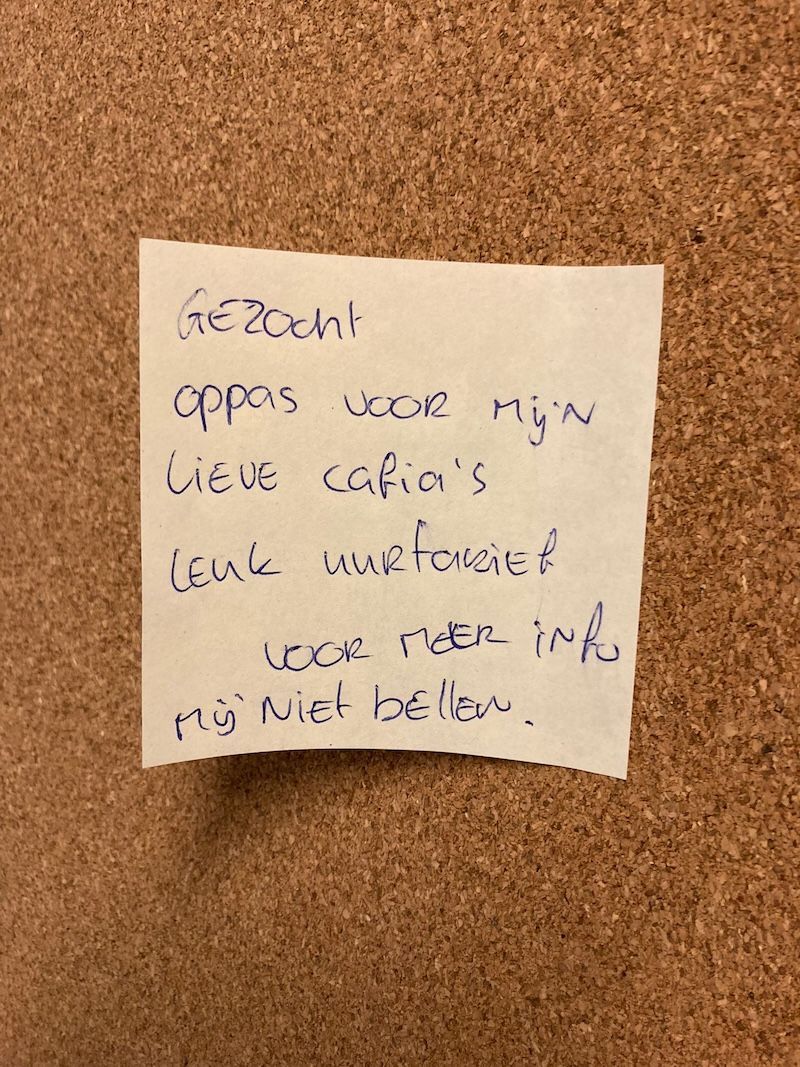 GEZocht
oppas voor mijn
LiEVE cafia's
LEUK uurtarief
voor meer info
mij niet bellen.